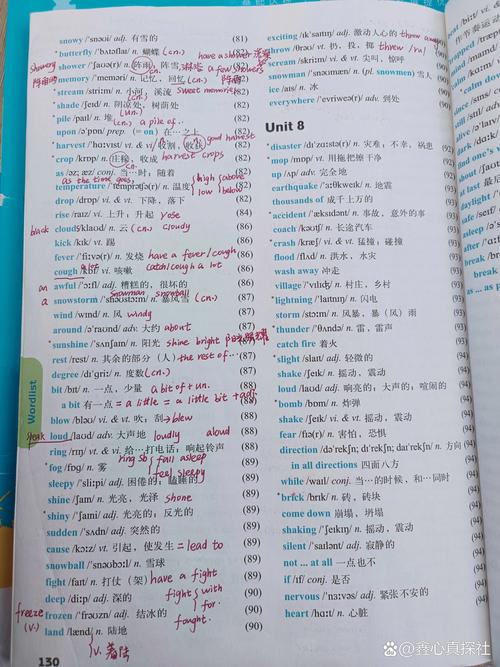 snowy /'snəʊi/ adj. 有雪的 (81)
*butterfly /'bʌtəflaɪ/ n. 蝴蝶 (cn.) (82)
showery
阵雨的
have a shower 洗澡
shower /'ʃaʊə(r)/ n. 阵雨, 阵雪; 淋浴 a few showers (82)
(cn.) 阵雨
memory /'meməri/ n. 记忆, 回忆 (cn.) (82)
*stream /striːm/ n. 小河, 溪流 sweet memories (82)
*shade /ʃeɪd/ n. 阴凉处, 树荫处 (un.) (82)
*pile /paɪl/ n. 堆 (cn.) a pile of… (82)
upon /ə'pɒn/ prep. (= on) 在…之上 (82)
*harvest /'hɑːvɪst/ vi. & vt. 收割, 收获 good harvest (82)
*crop /krɒp/ n. 庄稼, 收成 harvest crops (82)
as /əz; æz/ conj. 当…时; 随着 (cn.) (82)
as the time goes,
temperature /'temprətʃə(r)/ n. 温度 high above low below
drop /drɒp/ vi. & vt. 下降, 落下
rise /raɪz/ vi. 上升; 升起 rose (84)
black clouds /klaʊd/ n. 云 (cn.) cloudy (86)
kick /kɪk/ vt. 踢 (86)
fever /'fiːvə(r)/ n. 发烧 have a fever/cough (86)
cough /kɒf/ vi. 咳嗽 catch/cough a lot (86)
an awful /'ɔːfl/ adj. 糟糕的, 很坏的 (86)
snowman snowball
a *snowstorm /'snəʊstɔːm/ n. 暴风雪 (cn.) (86)
wind /wɪnd/ n. 风 windy (86)
around /ə'raʊnd/ adv. 大约 about (87)
*sunshine /'sʌnʃaɪn/ n. 阳光 shine bright (87)
rest /rest/ n. 其余的部分 (人) the rest of… (86)
degree /dɪ'griː/ n. 度数 (cn.) (87)
bit /bɪt/ n. 一点, 少量 a bit of + un. (88)
a bit 有一点 = a little = a little bit + adj (88)
blow /bləʊ/ vi. & vt. 吹; 刮 → blew (88)
speak loud /laʊd/ adv. 大声地 loudly aloud (88)
ring /rɪŋ/ vt. & vi. 给…打电话; 响起铃声 (89)
ring sb
*fog /fɒg/ n. 雾 fall asleep (89)
sleepy /'sliːpi/ adj. 困倦的; 瞌睡的 feel sleepy (89)
shine /ʃaɪn/ n. 光亮, 光泽 shone (89)
*shiny /'ʃaɪni/ adj. 光亮的; 反光的 (89)
sudden /'sʌdn/ adj. 突然的 (89)
cause /kɔːz/ vt. 引起, 使发生 = lead to (89)
snowball /'snəʊbɔːl/ n. 雪球 (89)
fight /faɪt/ n. 打仗 (架) have a fight (90)
deep /diːp/ adj. 深的 fight with (90)
freeze (v.) frozen /'frəʊzn/ adj. 结冰的 for (90)
fought.
land /lænd/ n. 陆地 (90)
v. 着陆
130
Wordlist
exciting /ɪk'saɪtɪŋ/ adj. 激动人心的
throw away
throw /θrəʊ/ vt. 扔, 投, 掷 threw /ru/
scream /skriːm/ vi. & vt. 尖叫, 惊呼
snowman /'snəʊmæn/ n. (pl. snowmen) 雪人
ice /aɪs/ n. 冰
everywhere /'evriweə(r)/ adv. 到处
Unit 8
*disaster /dɪ'zɑːstə(r)/ n. 灾难; 不幸, 祸患 (92)
*mop /mɒp/ vt. 用拖把擦干净 (92)
up /ʌp/ adv. 完全地 (92)
earthquake /'ɜːθkweɪk/ n. 地震 (93)
thousands of 成千上万的 (93)
*accident /'æksɪdənt/ n. 事故, 意外的事 (93)
coach /kəʊtʃ/ n. 长途汽车 (93)
*crash /kræʃ/ vi. & vt. 猛撞, 碰撞 (93)
flood /flʌd/ n. 洪水, 水灾 (93)
wash away 冲走 (93)
village /'vɪlɪdʒ/ n. 村庄, 乡村 (93)
*lightning /'laɪtnɪŋ/ n. 闪电 (93)
storm /stɔːm/ n. 风暴, 暴（风）雨 (93)
*thunder /'θʌndə/ n. 雷, 雷声 (94)
catch fire 着火 (94)
*slight /slaɪt/ adj. 轻微的 (94)
shake /ʃeɪk/ n. 摇动, 震动 (94)
loud /laʊd/ adj. 响亮的; 大声的; 喧闹的 (94)
*bomb /bɒm/ n. 炸弹 (94)
shake /ʃeɪk/ vi. & vt. 摇动, 震动 (94)
fear /fɪə(r)/ n. 害怕, 恐惧 (94)
direction /də'rekʃn, dɪ'rekʃn; daɪ'rekʃn/ n. 方向 (94)
in all directions 四面八方 (94)
while /waɪl/ conj. 当…的时候, 和…同时 (94)
*brick /brɪk/ n. 砖, 砖块 (94)
come down 崩塌, 坍塌 (94)
shaking /'ʃeɪkɪŋ/ n. 摇动, 震动 (94)
silent /'saɪlənt/ adj. 寂静的 (94)
not … at all 一点也不 (94)
if /ɪf/ conj. 是否 (94)
nervous /'nɜːvəs/ adj. 紧张不安的 (94)
heart /hɑːt/ n. 心脏 (94)
@鑫心真探社